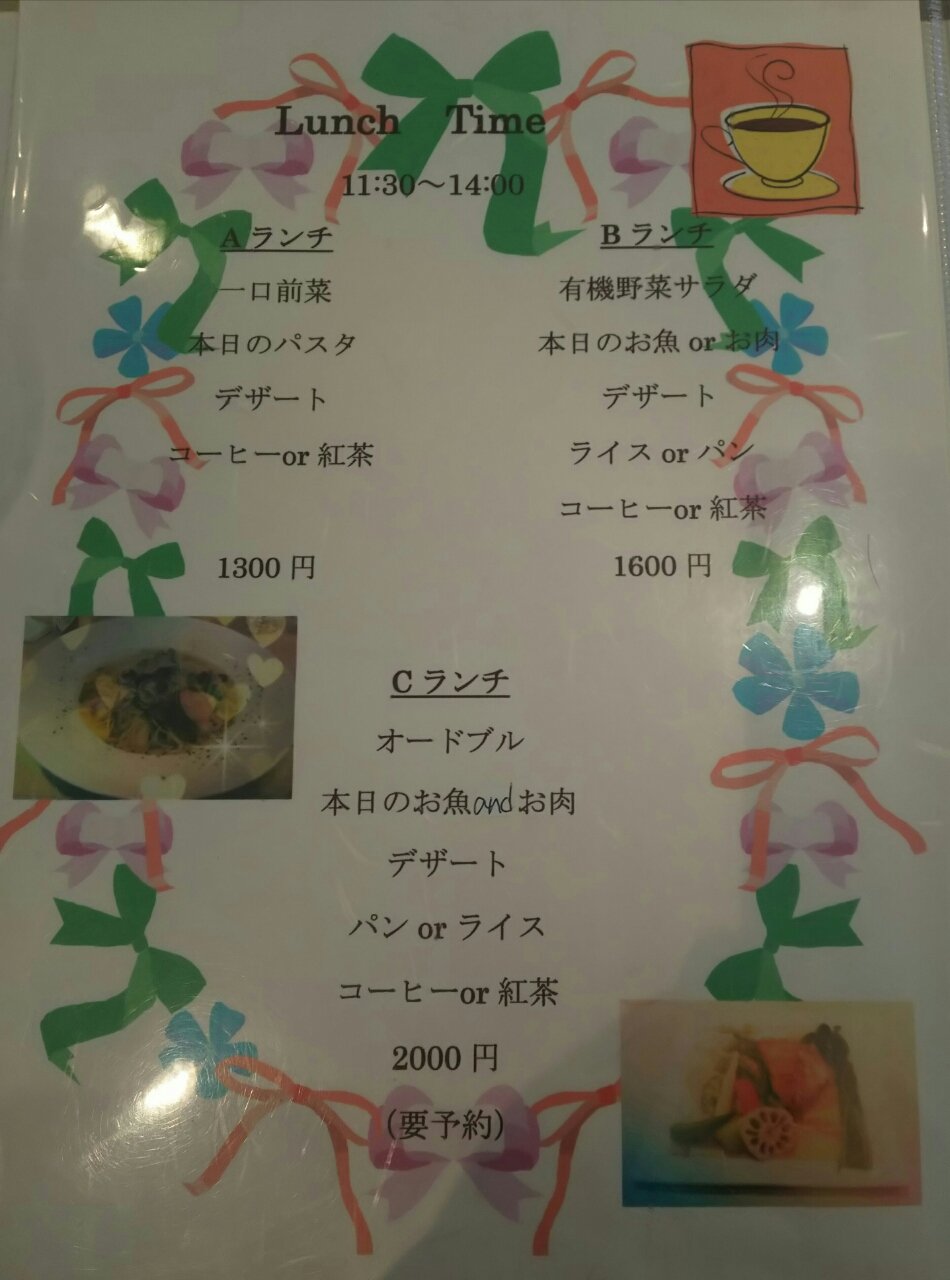 Lunch Time
11:30～14:00
Aランチ
一口前菜
本日のパスタ
デザート
コーヒーor 紅茶
1300 円
Bランチ
有機野菜サラダ
本日のお魚 or お肉
デザート
ライス or パン
コーヒーor 紅茶
1600 円
Cランチ
オードブル
本日のお魚andお肉
デザート
パン or ライス
コーヒーor 紅茶
2000 円
(要予約)